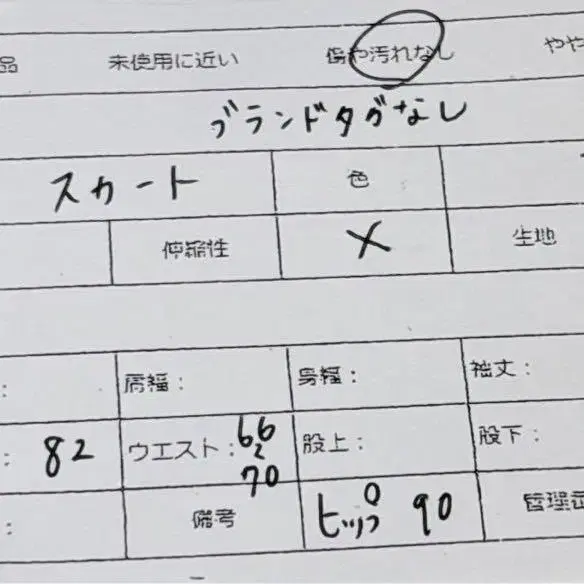 品 未使用に近い 傷や汚れなし やや
ブランドタグなし
スカート 色
伸縮性 × 生地
: 肩幅: 身幅: 袖丈:
: 82 ウエスト: 66 股上: 股下:
〜
70
: 備考 ヒップ 90 管理番